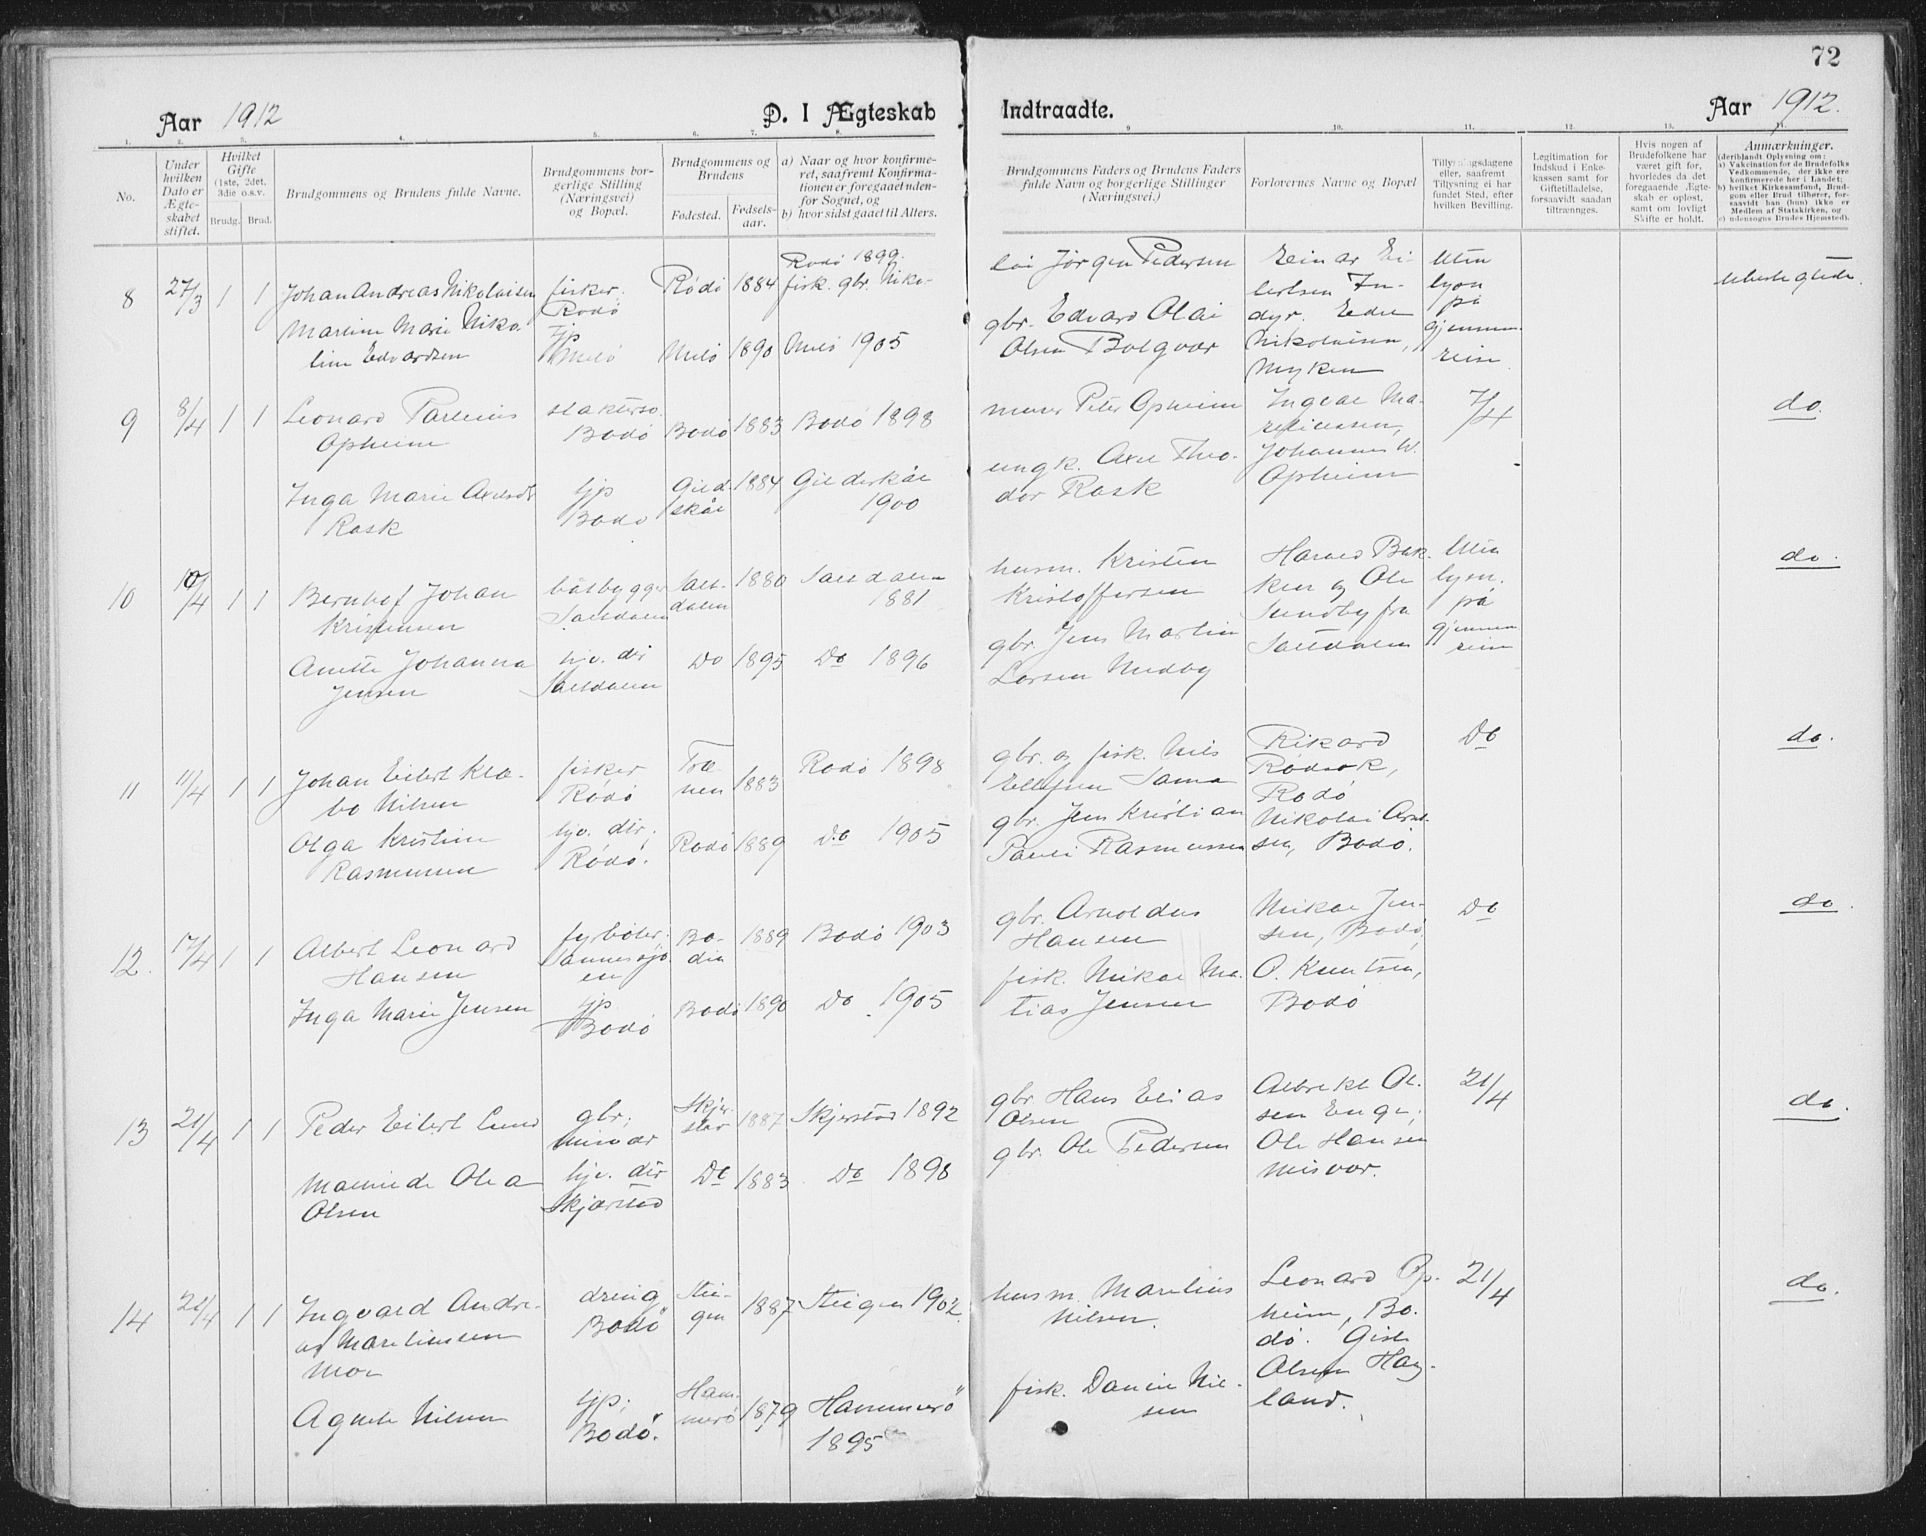 72
Aar 1912
D. I Ægteskab
Indtraadte.
Aar 1912.
1. 2. 3. 4. 5. 6. 7. 8. 9 10. 11. 12. 13. 14.
No.
Under hvilken Dato er Ægteskabet stiftet.
Hvilket Gifte (1ste, 2det, 3die o.s.v.
Brudg. Brud.
Brudgommens og Brudens fulde Navne.
Brudgommens borgerlige Stilling (Næringsvei) og Bopæl.
Brudgommens og Brudens
Fødested. Fødselsaar.
a) Naar og hvor konfirmeret, saafremt Konfirmationen er foregaaet udenfor Sognet, og
b) hvor sidst gaaet til Alters.
Brudgommens Faders og Brudens Faders fulde Navn og borgerlige Stillinger (Næringsvei.)
Forlovernes Navne og Bopæl
Tillysningsdagene eller, saafremt Tillysning ei har fundet Sted, efter hvilken Bevilling.
Legitimation for Indskud i Enkekassen samt for Giftetilladelse, forsaavidt saadan tiltrænges.
Hvis nogen af Brudefolkene har været gift før, hvorledes da det foregaaende Ægteskab er opløst, samt om lovligt Skifte er holdt.
Anmærkninger.
(deriblandt Oplysning om:
a) Vakcination for de Brudefolks Vedkommende, der ikke ere konfirmerede her i Landet;
b) hvilket Kirkesamfund, Brudgom eller Brud tilhører, forsaavidt han (hun) ikke er Medlem af Statskirken, og
c) udensogns Brudes Hjemsted).
8 27/3 1 1 Johan Andreas Nikolaisen
fisker, Rødø
Rødø 1884
Rødø 1899.
fisk. gbr. Niko-
lai Jørgen Pedersen
Einar Ei-
lertsen
Uten
lysn
på
gjennem
reise
Martine Marie Niko
line Edvardsen
Melø 1890 Melø 1905
gbr. Edvard Olai
Olsen Bolgvær
Nikolaisen,
Myken
9 8/4 1 1 Leonard
Opheim
Bodø
Bodø 1883 Bodø 1898
murer Peter Opheim
Ingvar Ma-
7/4
do.
Inga Marie Axelsdt
Rask
tjp
Bodø
Gild
skål
1884 Gilderskål
1900
ungk. Axel Theo-
dor Rask
Johannes W.
Opheim
10 10/4 1 1 Bernhof Johan
Kristensen
båtbygger
Saltdalen
Salt-
dalen
1880 Saltdalen
1881
husm. Kristen
Kristoffersen
Harald Bak
ken og Ole
Sundby fra
Saltdalen
Uten
lysn.
på
gjennem
reise
do.
Anette Johanna
Jensen
hjv. dir
Saltdalen
Do 1895 Do 1896
gbr. Jens Martin
Larsen Medby
11 11/4 1 1 Johan Eilert Klæ-
bo Nilsen
fisker
Rødø
Træ
nen
1883
Rødø 1898
gbr. og fisk. Nils
Ellefsen
Rikard
Rødsok,
Rødø
Do
do.
Olga Kristine
Rasmussen
hjv. dir,
Rødø.
Rødø 1889 Do 1905
gbr. Jens Kristian
Rasmussen
Nikolai Arnt-
sen, Bodø.
12. 17/4 1 1 Albert Leonard
Hansen
fyrbøter,
Sannessjø
en
Bo-
din
1889 Bodø 1903
gbr. Arnoldus
Hansen
Mikal Jen-
sen, Bodø,
Do
do.
Inga Marie Jensen
tjp.
Bodø
Bodø 1890 Do 1905
fisk. Mikal Ma-
tias Jensen
O. Knutsen,
Bodø
13 21/4 1 1 Peder Eilert Lund
gbr;
Misvær
Skjer-
stad
1887 Skjerstad 1892
gbr. Hans Elias
Olsen
Albrekt Ol-
sen Enge,
21/4
do.
Olea
Olsen
hjv. dir
Skjærstad
Do 1883 Do 1898
gbr. Ole Pedersen
Ole Hansen
Misvær.
14 21/4 1 1 Ingvard Andre-
as Mareliussen
Moe
dreng
Bodø
Stei-
gen
1887 Steigen 1902
husm. Marelius
Nilsen.
Leonard Op-
heim, Bo-
dø.
21/4
do.
Agnete Nilsen
tjp;
Bodø.
Ham-
merø
1879 Hammerø
1895
fisk. Daniel Niel-
sen
Olsen Haug-
land.